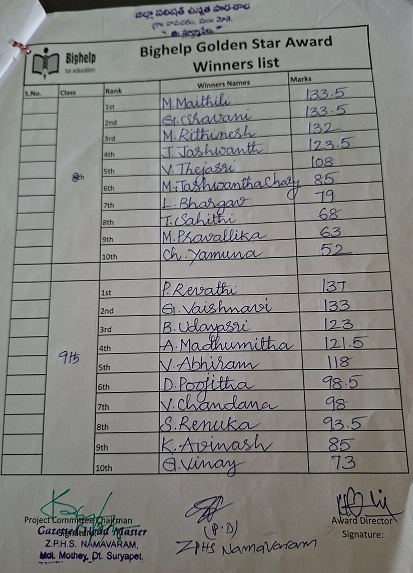 జిల్లా పరిషత్ ఉన్నత పాఠశాల
Bighelp
for education
Bighelp Golden Star Award
Winners list
S.No. Class Rank Winners Names Marks
8th
1st M.Maithili 133.5
2nd G.Sravani 133.5
3rd M.Rithunesh 132
4th J.Jashwanth 123.5
5th V.Thejasri 108
6th M.JashwanthaChary 85
7th L.Bhargav 79
8th T.Sahithi 68
9th M.Pravallika 63
10th Ch.Yamuna 52
9th
1st P.Revathi 137
2nd G.Vaishnavi 133
3rd B.Udayasri 123
4th A.Madhumitha 121.5
5th V.Abhiram 118
6th D.Poojitha 98.5
7th V.Chandana 98
8th S.Renuka 93.5
9th K.Avinash 85
10th G.Vinay 73
Project Committee Chairman
Signature:
Gazetted Head Master
Z.P.H.S. NAMAVARAM,
Mdl. Mothey, Dt. Suryapet.
(P.D)
ZPHS Namavaram
Award Director
Signature: